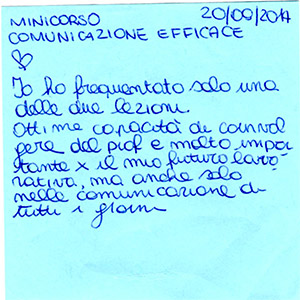 MINICORSO 20/09/2017
COMUNICAZIONE EFFICACE
Io ho frequentato solo una
delle due lezioni.
Ottime capacità di coinvol
gere del prof e molto impo
tante x il mio futuro lavo
rativa, ma anche solo
nelle comunicazione di
tutti i giorni